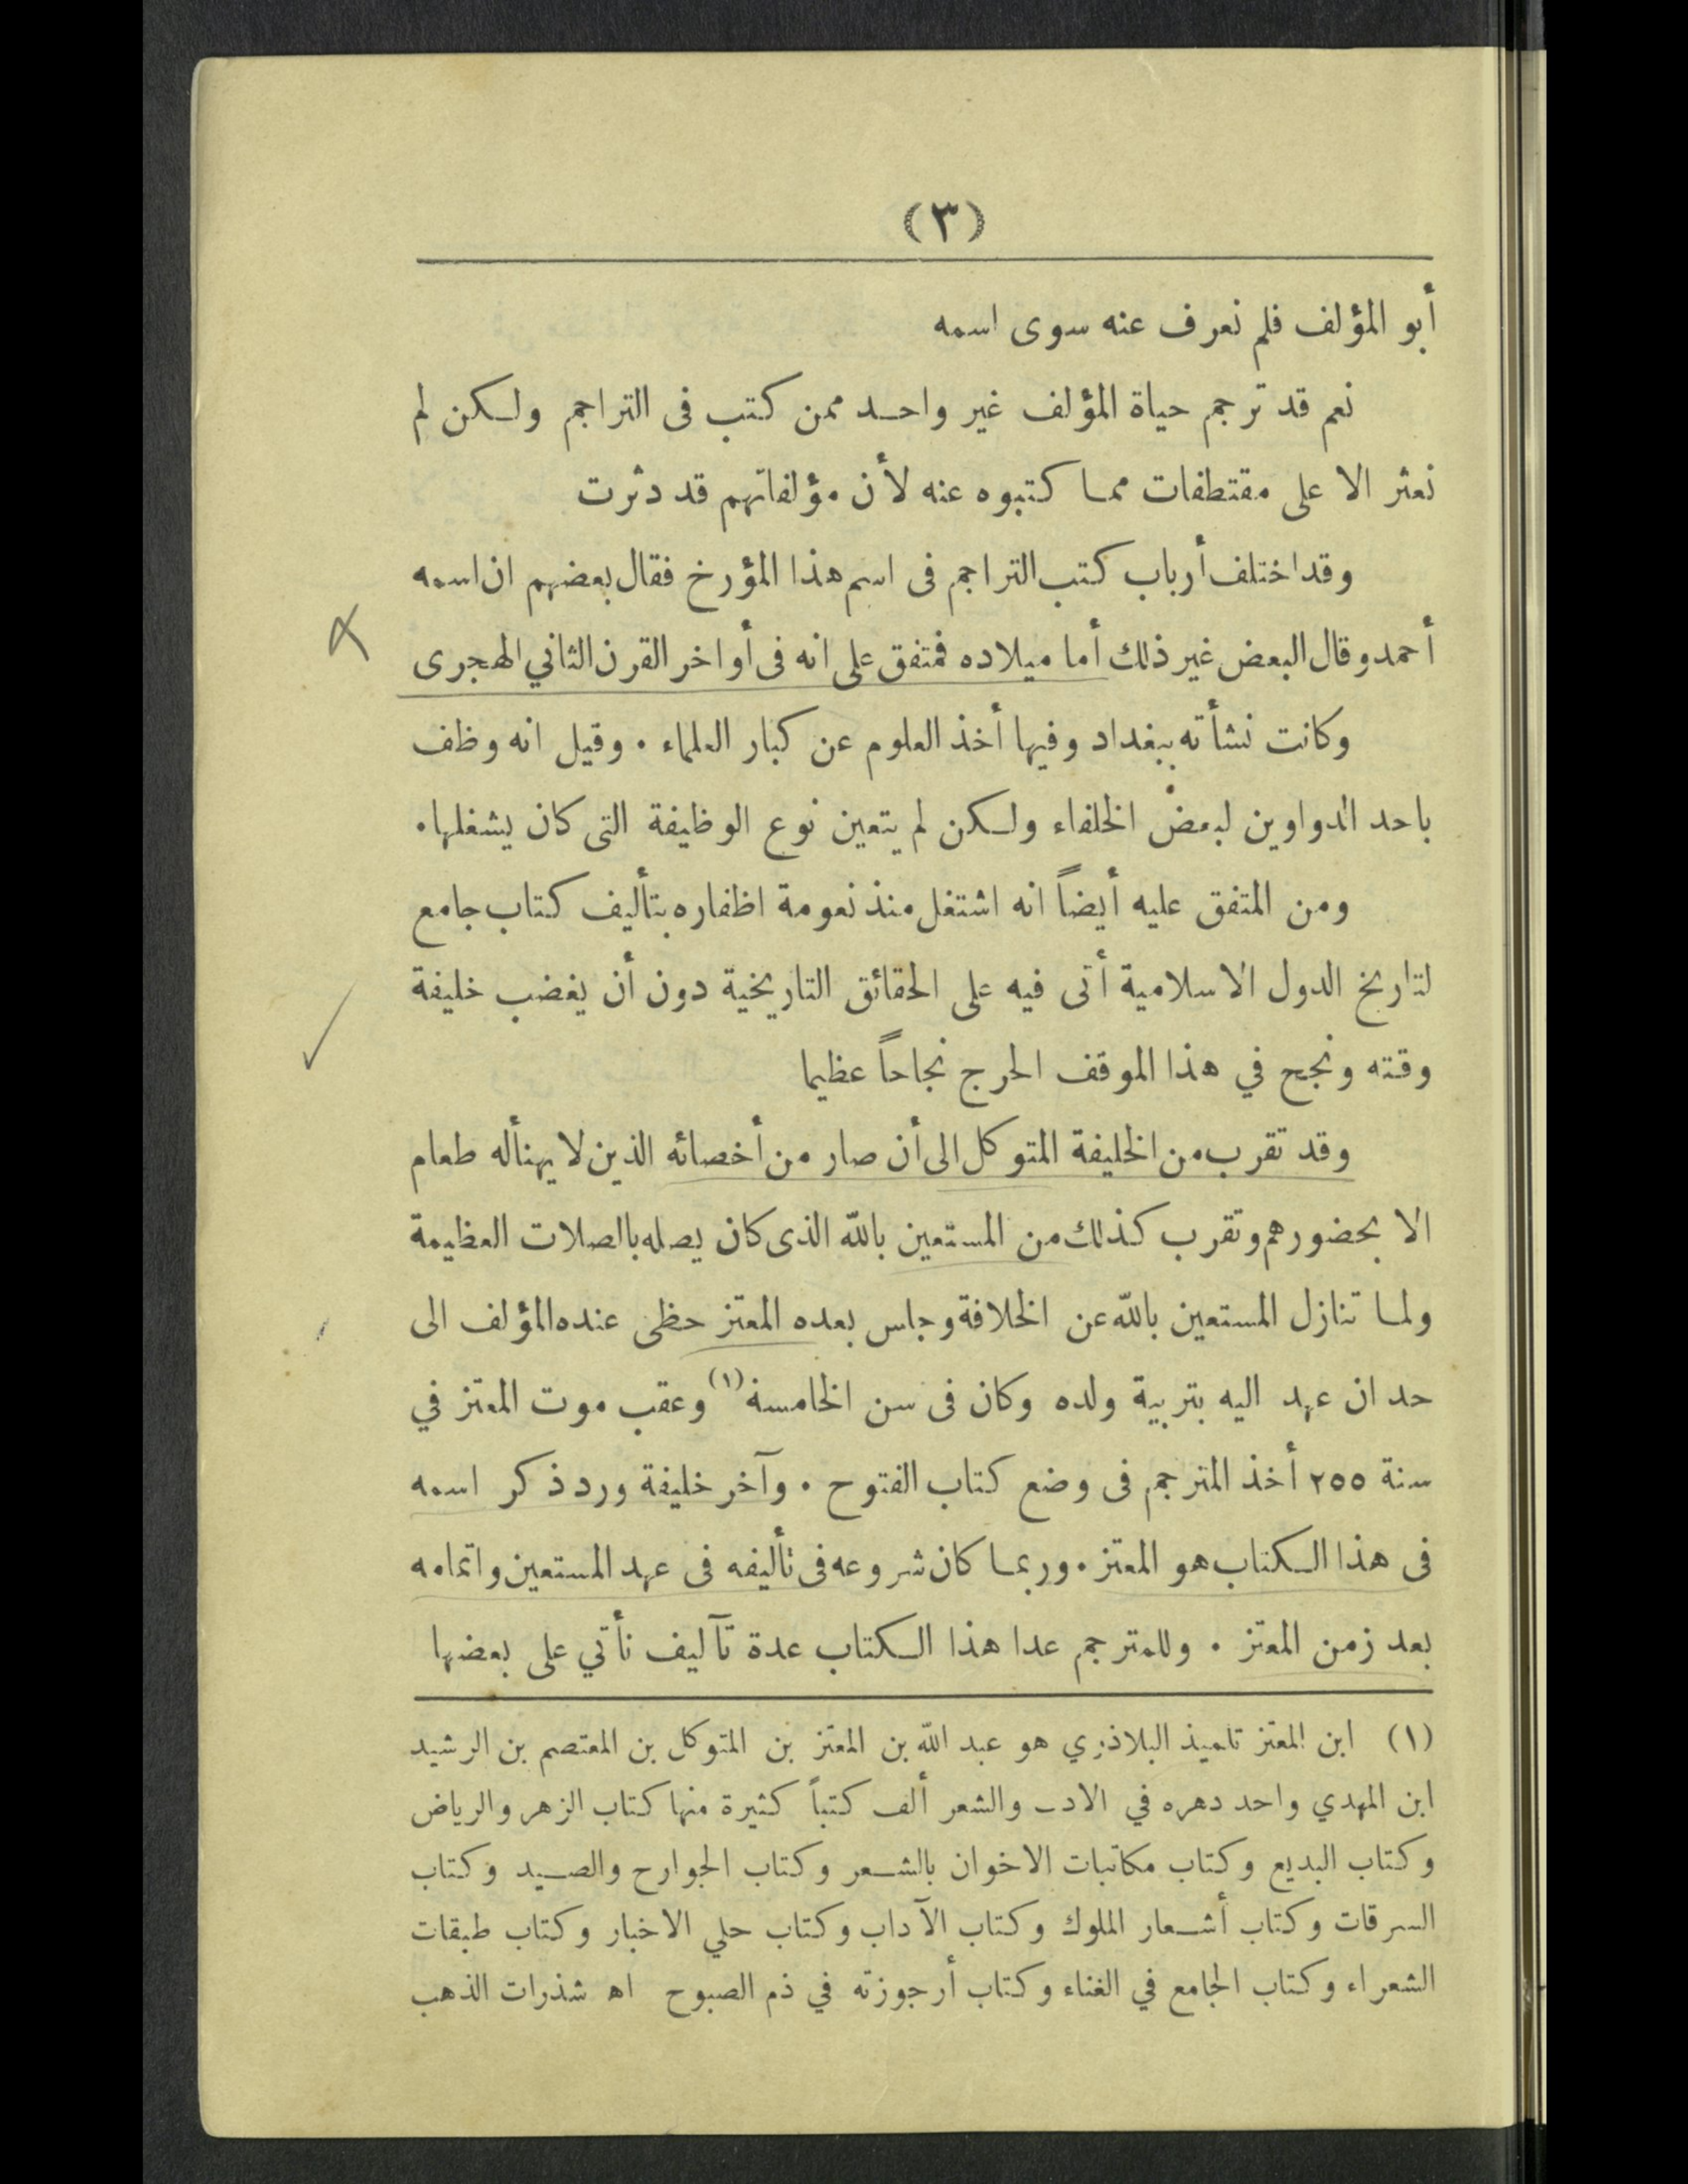 (٣)
أبو المؤلف فلم نعرف عنه سوى اسمه
نعم قد ترجم حياة المؤلف غير واحد ممن كتب فى التراجم ولكن لم
نعثر الا على مقتطفات مما كتبوه عنه لأن مؤلفاتهم قد دثرت
وقد اختلف أرباب كتب التراجم فى اسم هذا المؤرخ فقال بعضهم ان اسمه
أحمد وقال البعض غير ذلك أما ميلاده فمتفق على انه فى أواخر القرن الثاني الهجرى
وكانت نشأته ببغداد وفيها أخذ العلوم عن كبار العلماء . وقيل انه وظف
باحد الدواوين لبعض الخلفاء ولكن لم يتعين نوع الوظيفة التى كان يشغلها .
ومن المتفق عليه أيضاً انه اشتغل منذ نعومة اظفاره بتأليف كتاب جامع
لتاريخ الدول الاسلامية أتى فيه على الحقائق التاريخية دون أن يغضب خليفة
وقته ونجح في هذا الموقف الحرج نجاحاً عظيما
وقد تقرب من الخليفة المتوكل الى أن صار من أخصائه الذين لا يهنأ له طعام
الا بحضورهم وتقرب كذلك من المستعين بالله الذى كان يصله بالصلات العظيمة
ولما تنازل المستعين بالله عن الخلافة وجلس بعده المعتز حظى عنده المؤلف الى
حد ان عهد اليه بتربية ولده وكان فى سن الخامسة (١) وعقب موت المعتز في
سنة ٢٥٥ أخذ المترجم فى وضع كتاب الفتوح . وآخر خليفة ورد ذكر اسمه
فى هذا الكتاب هو المعتز . وربما كان شروعه فى تأليفه فى عهد المستعين واتمامه
بعد زمن المعتز . وللمترجم عدا هذا الكتاب عدة تآليف نأتي على بعضها
(١) ابن المعتز تلميذ البلاذري هو عبد الله بن المعتز بن المتوكل بن المعتصم بن الرشيد
ابن المهدي واحد دهره في الادب والشعر ألف كتباً كثيرة منها كتاب الزهر والرياض
وكتاب البديع وكتاب مكاتبات الاخوان بالشعر وكتاب الجوارح والصيد وكتاب
السرقات وكتاب أشعار الملوك وكتاب الآداب وكتاب حلي الاخبار وكتاب طبقات
الشعراء وكتاب الجامع في الغناء وكتاب أرجوزته في ذم الصبوح اه شذرات الذهب